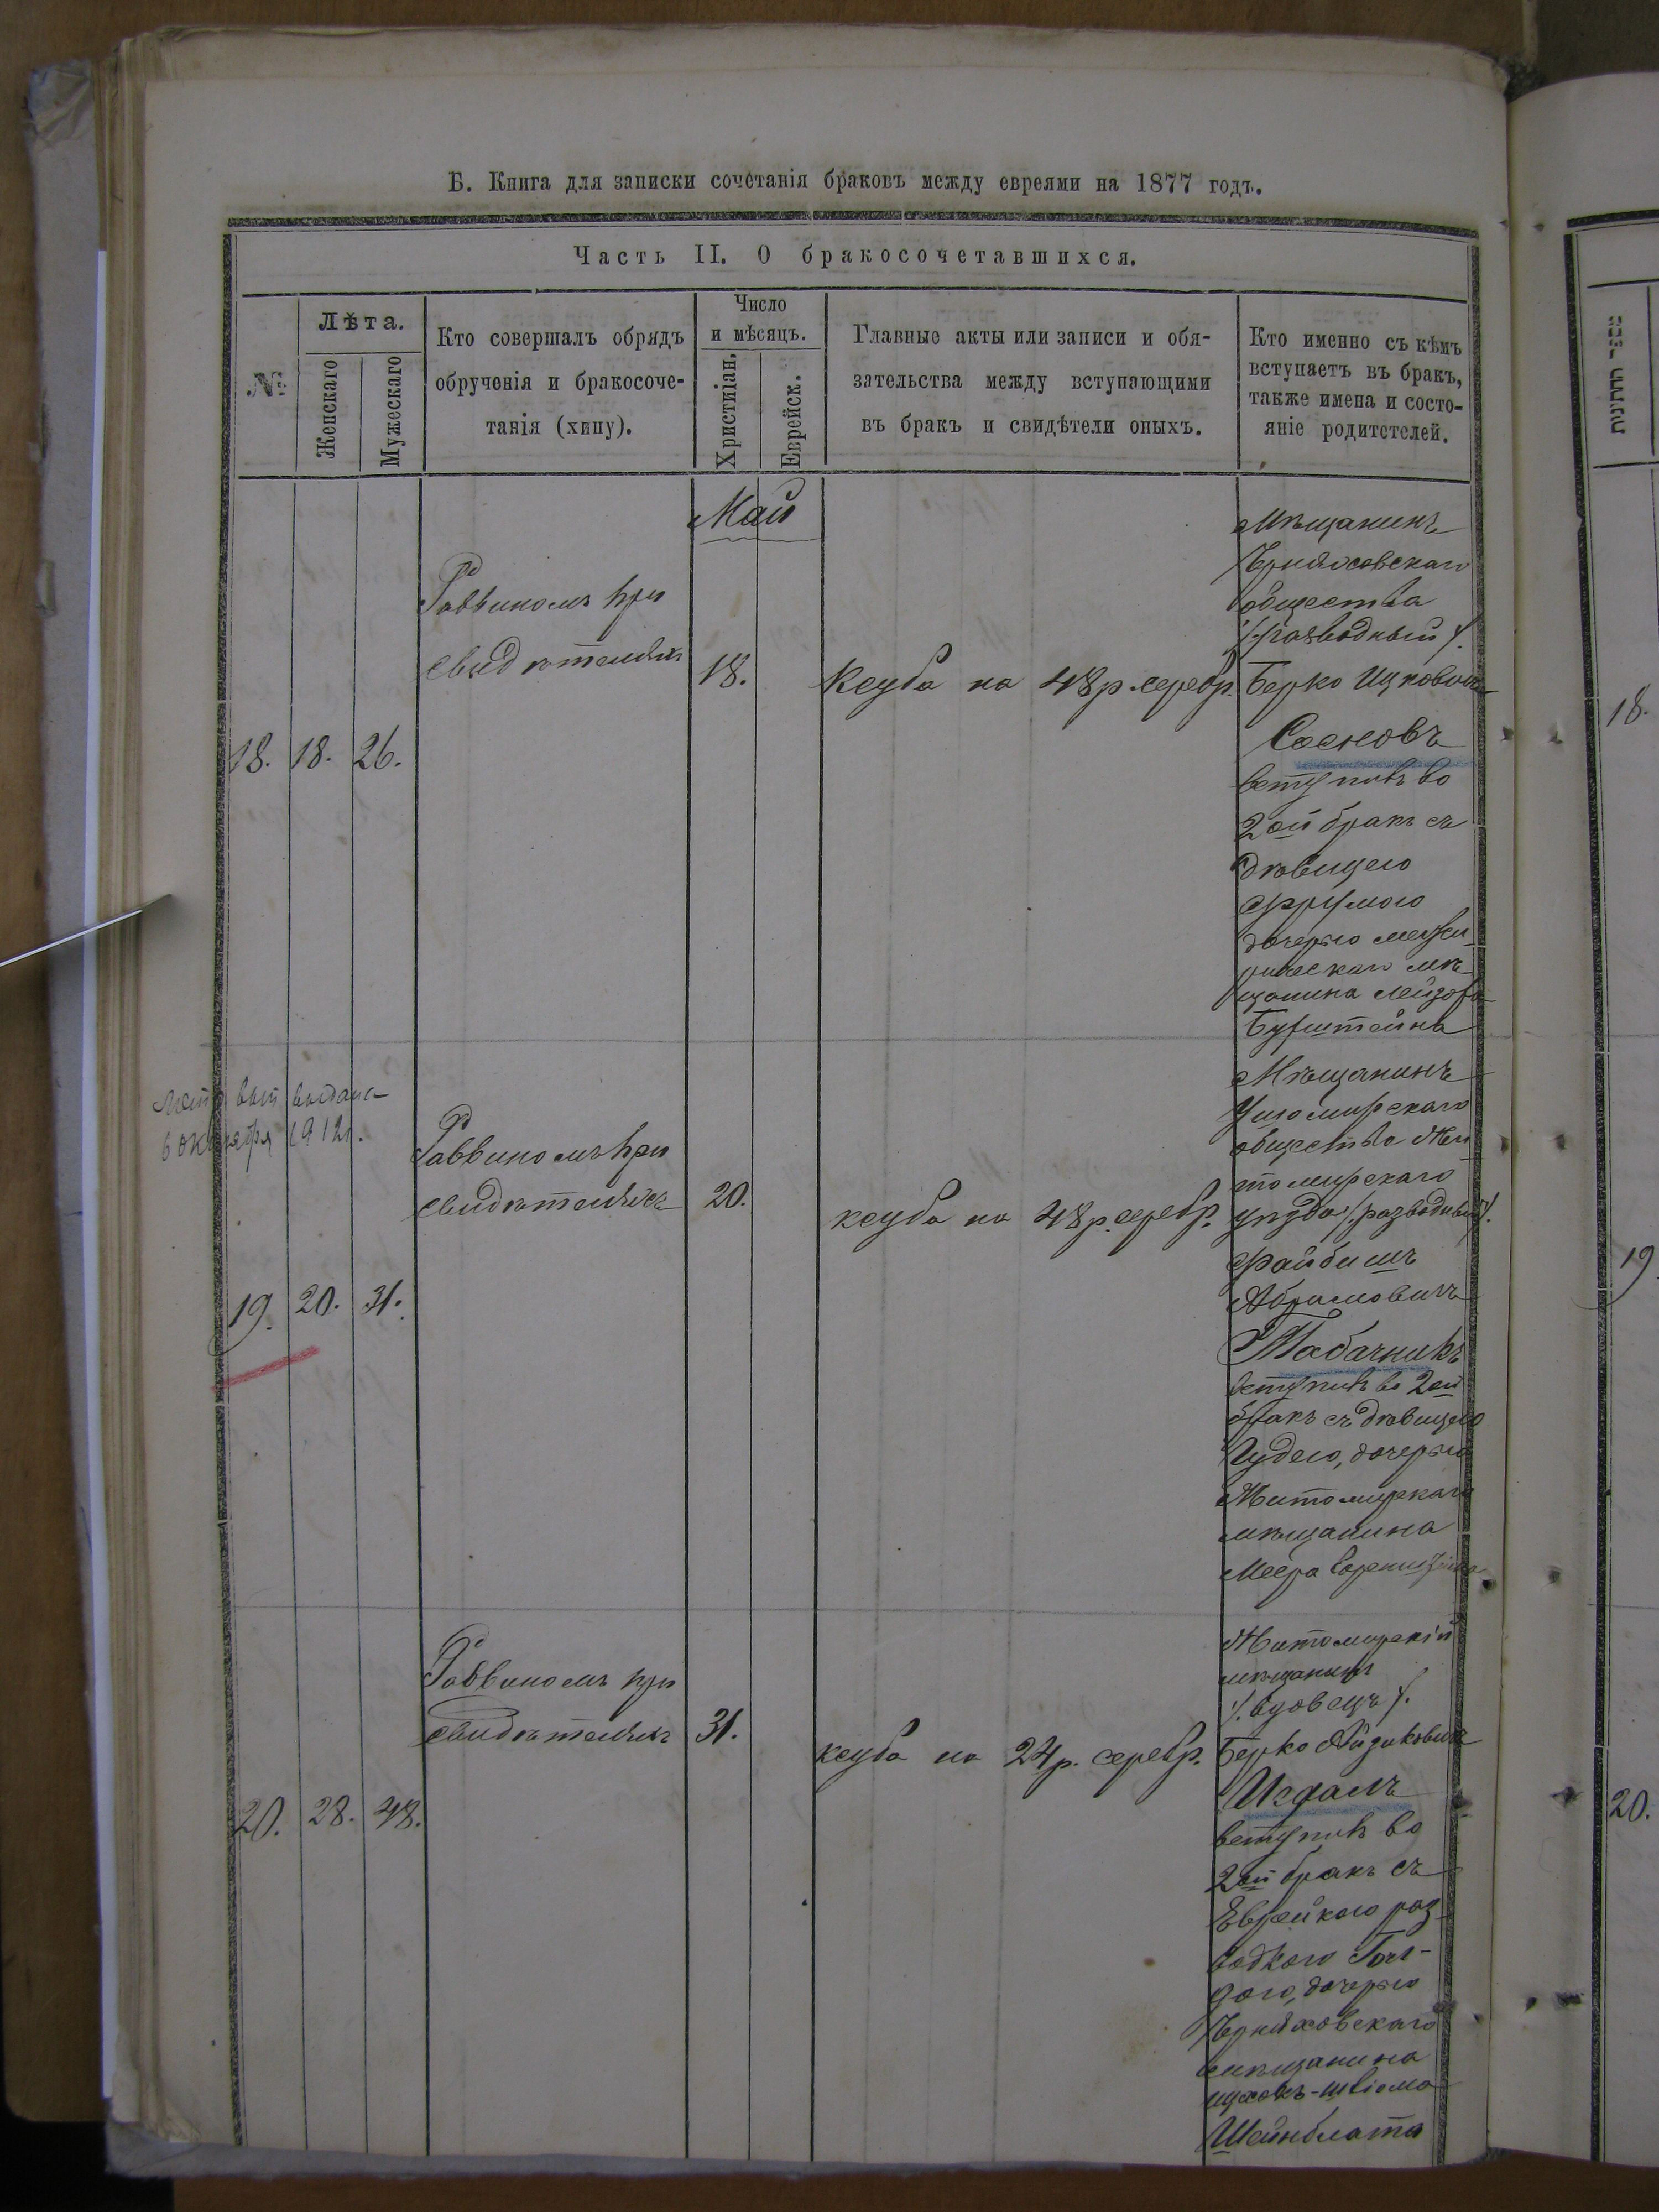 Б. Книга для записки сочетанія браковъ между евреями на 1877 годъ.
Часть II. О бракосочетавшихся.
№
Лѣта.
Женскаго
Мужескаго
Кто совершалъ обрядъ
обрученія и бракосоче-
танія (хипу).
Число
и мѣсяцъ.
Христіан.
Еврейск.
Главные акты или записи и обя-
зательства между вступающими
въ бракъ и свидѣтели оныхъ.
Кто именно съ кѣмъ
вступаетъ въ бракъ,
также имена и состо-
яніе родитетелей.
Май
18.
18.
26.
Раввиномъ при
свидѣтеляхъ
18.
Ксуба на 48 р. серебр.
Мѣщанинъ
Черняховскаго
общества
/.разводный/.
Берко Ицковичъ
Сосновъ
вступилъ во
2ой бракъ съ
дѣвицею
Фрумою
дочерью межи-
ричскаго мѣ-
щанина Лейзора
Бурштейна
выдана
6 октября 1912г.
19.
20.
31.
Раввиномъ при
свидѣтеляхъ
20.
ксуба на 48 р. серебр.
Мѣщанинъ
Ушомирскаго
общества Жи-
томирскаго
уѣзда /.разводный/.
Файбишъ
Абрамовичъ
Табачникъ
вступилъ во 2ой
бракъ съ дѣвицею
Чудею, дочерью
Житомирскаго
мѣщанина
Меера
20.
28.
48.
Раввиномъ при
свидѣтеляхъ
31.
ксуба на 24 р. серебр.
Житомирскій
мѣщанинъ
/.вдовецъ/.
Берко Айзиковичъ
Исдалъ
вступилъ во
2ой бракъ съ
Еврейкою раз-
водкою
дочерью
Черняховскаго
мѣщанина
Шейнблата
18.
19
20.